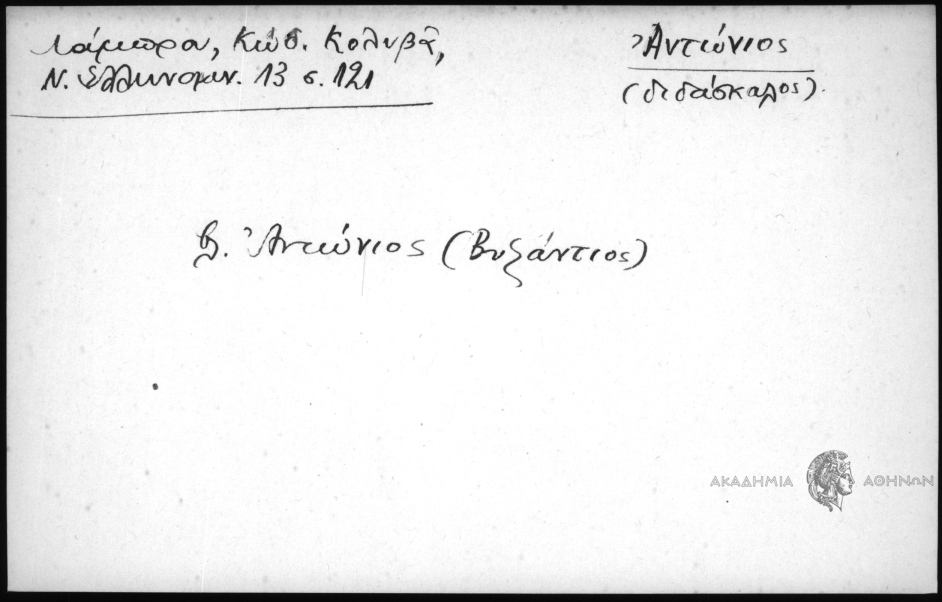 Λάμπρου, Κώδ. Κολυβᾶ,
Ν. Ἑλληνομν. 13 σ. 121
Ἀντώνιος
(διδάσκαλος).
β. Ἀντώνιος (Βυζάντιος)
ΑΚΑΔΗΜΙΑ ΑΘΗΝΩΝ